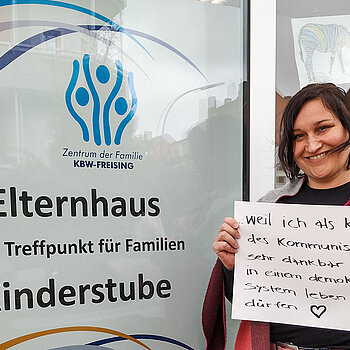 Zentrum der Familie
KBW-FREISING
Elternhaus
Treffpunkt für Familien
inderstube
weil ich als K
des Kommunis
sehr dankbar
in einem demok
System leben
dürfen ♡